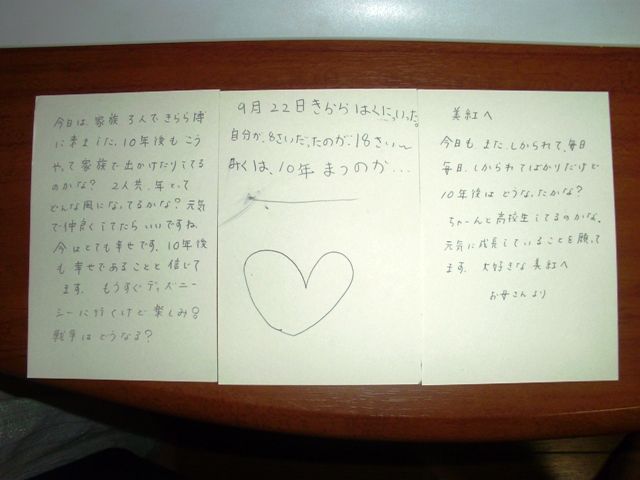 今日は、家族3人できらら博
に来ました。10年後もこう
やって家族で出かけたりしてる
のかな？ 2人共、年とって
どんな風になってるかな？元気
で仲良くしてたらいいですね
今はとても幸せです。10年後
も幸せであることと信じて
ます。もうすぐディズニー
シーに行くけど楽しみ!
戦争はどうなる？
9月22日きららはくにいった。
自分が、8さいだったのが、18さい〜
は、10年まつのか…
美紅へ
今日も、また、しかられて、毎日
毎日、しかられてばかりだけど
10年後は どうなったかな？
ちゃーんと高校生してるのかな。
元気に成長していることを願って
ます。大好きな美紅へ
お母さんより